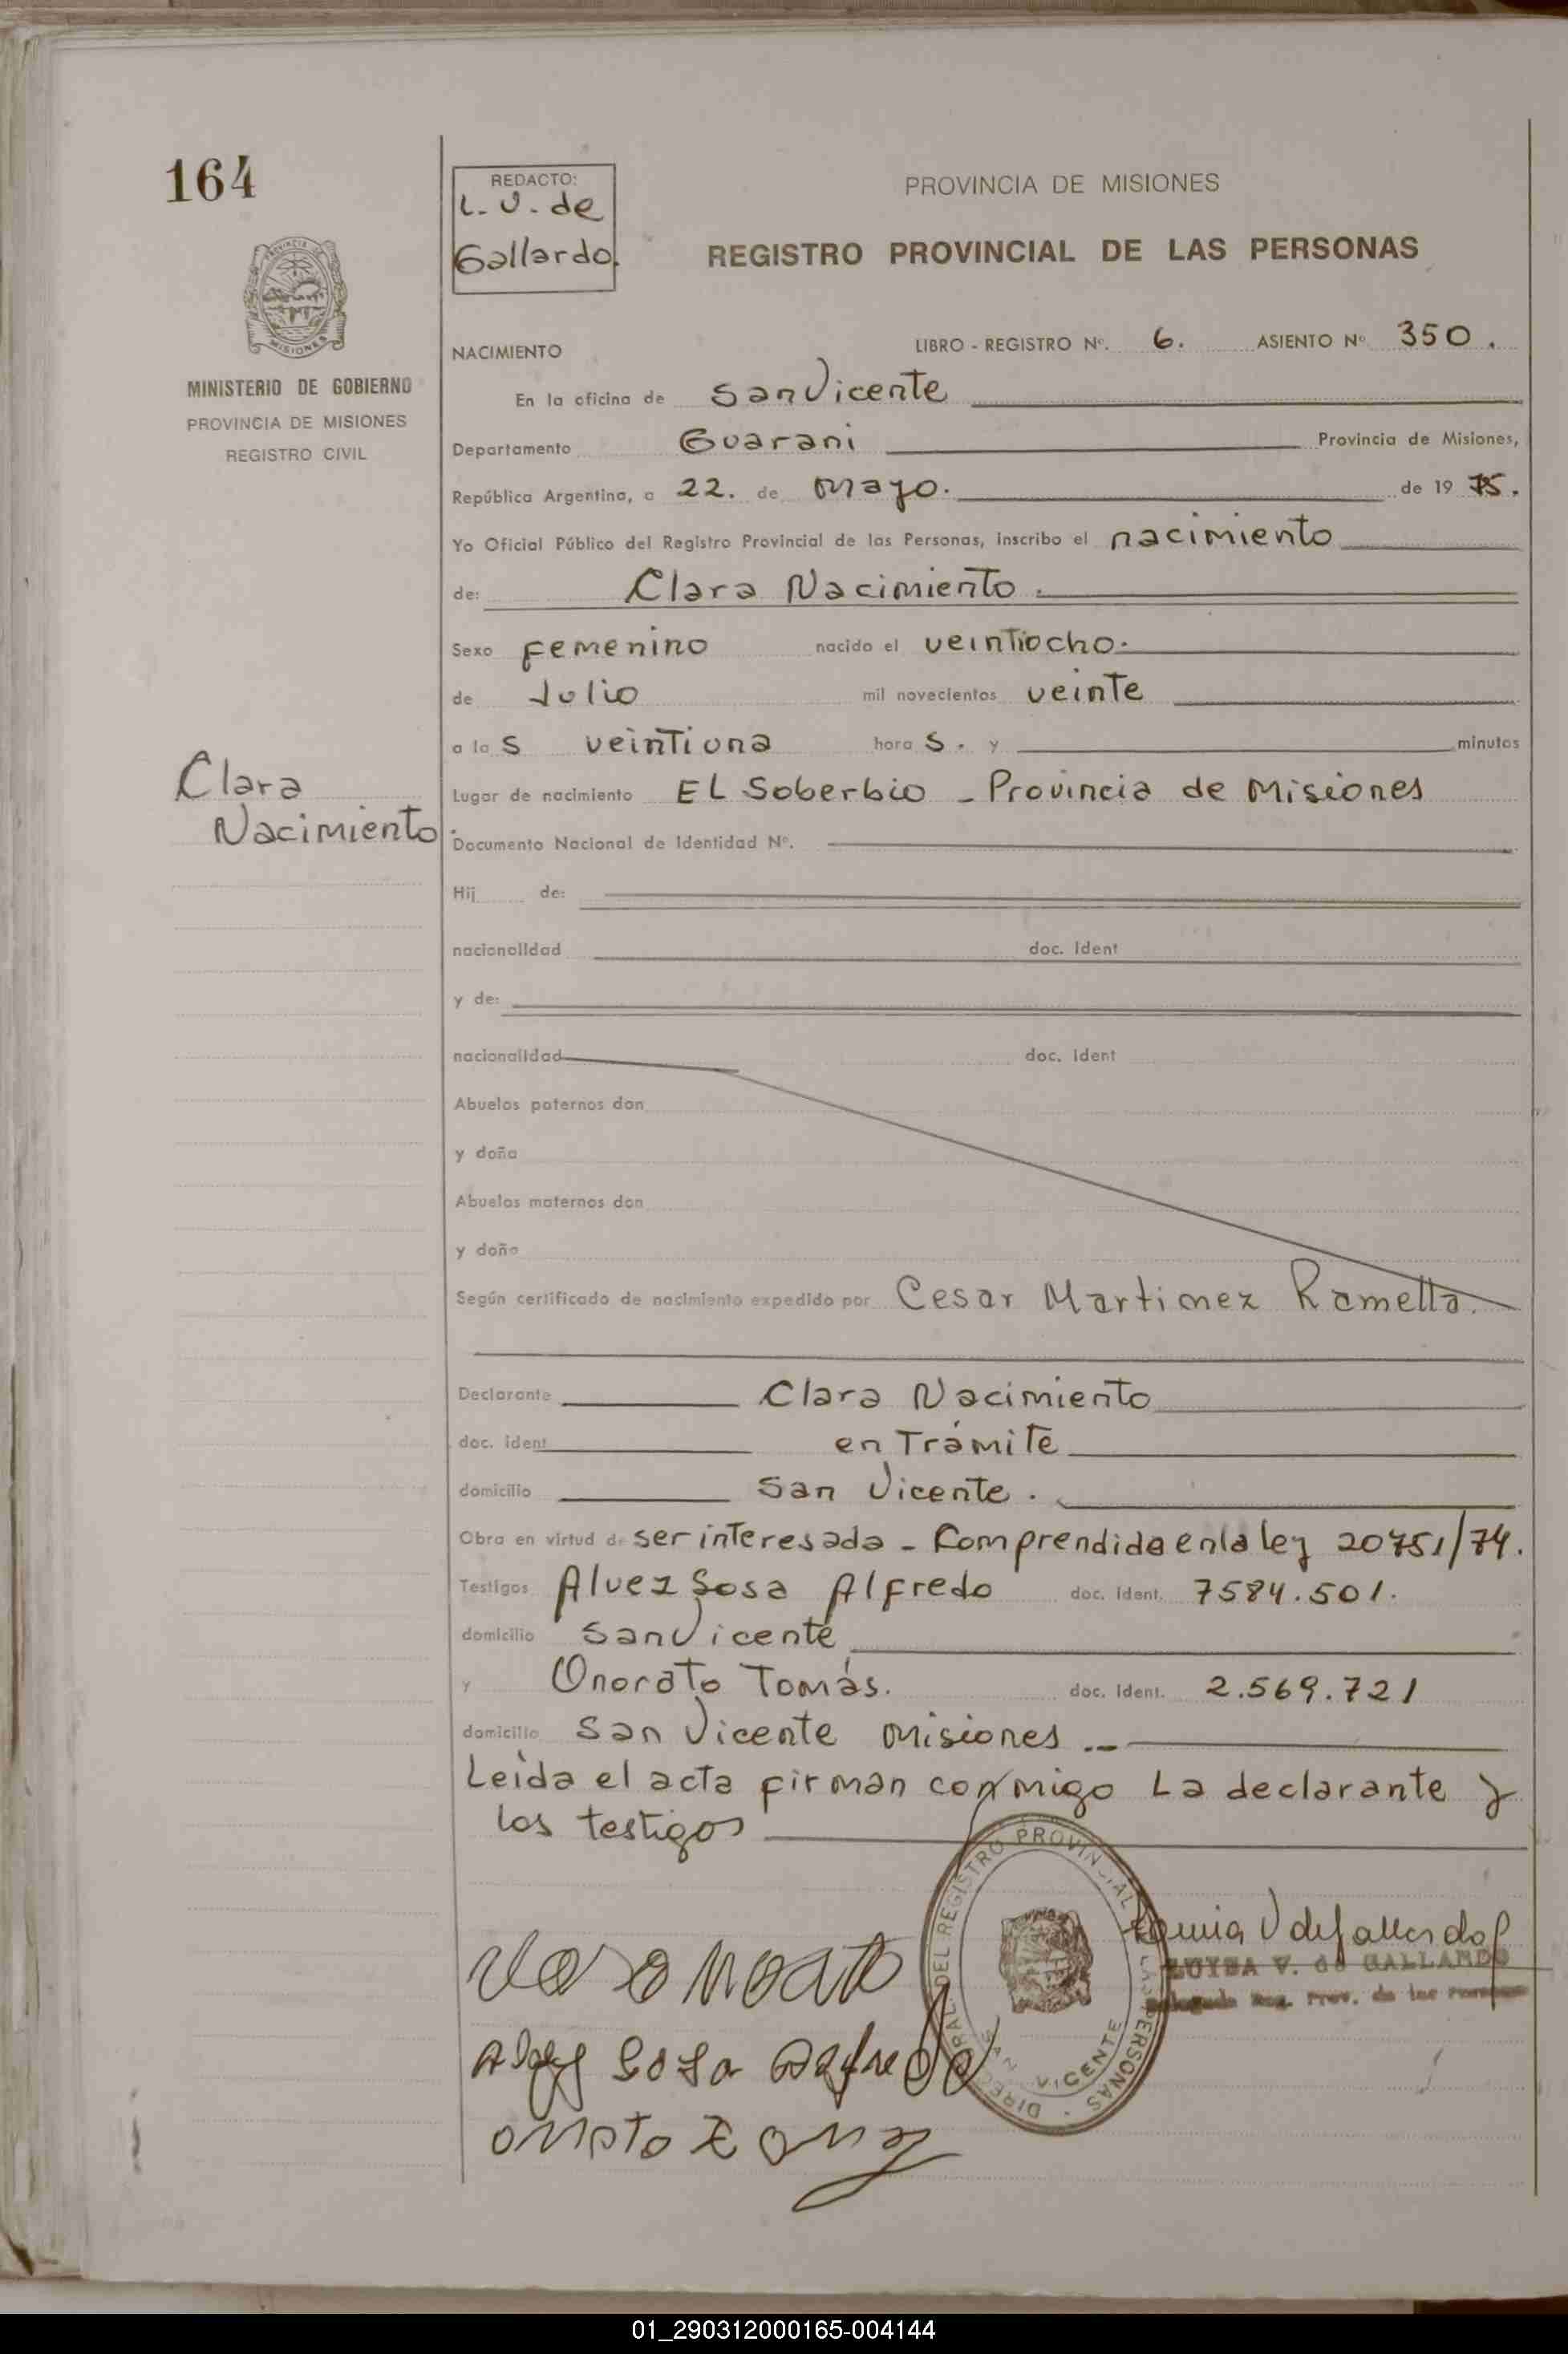 164
REDACTO:
L. V. de
Gallardo.
PROVINCIA DE MISIONES
REGISTRO PROVINCIAL DE LAS PERSONAS
PROVINCIA DE
MISIONES
MINISTERIO DE GOBIERNO
PROVINCIA DE MISIONES
REGISTRO CIVIL
NACIMIENTO LIBRO - REGISTRO Nº. 6. ASIENTO Nº 350.
En la oficina de San Vicente
Departamento Guarani Provincia de Misiones,
República Argentina, a 22. de Mayo. de 19 75.
Yo Oficial Público del Registro Provincial de las Personas, inscribo el nacimiento
de: Clara Nacimiento.
Sexo Femenino nacido el veintiocho.
de Julio mil novecientos veinte
a la s veintiuna hora s. y minutos
Clara
Nacimiento.
Lugar de nacimiento EL Soberbio - Provincia de Misiones
Documento Nacional de Identidad Nº.
Hij de:
nacionalidad doc. Ident
y de:
nacionalidad doc. Ident
Abuelos paternos don
y doña
Abuelos maternos don
y doña
Según certificado de nacimiento expedido por Cesar Martimez Ramella.
Declarante Clara Nacimiento
doc. ident en Trámite
domicilio San Vicente.
Obra en virtud de ser interesada - Comprendida en la ley 20751/74.
Testigos Alvez Sosa Alfredo doc. Ident. 7584.501.
domicilio San Vicente
y Onorato Tomás. doc. Ident. 2.569.721
domicilio San Vicente Misiones
Leída el acta firman conmigo La declarante y
los testigos
DIREC GRAL DEL REGISTRO PROVINCIAL LAS PERSONAS
SAN VICENTE
LUISA V. de GALLARDO
Delegada Reg. Prov. de las Personas
01_290312000165-004144